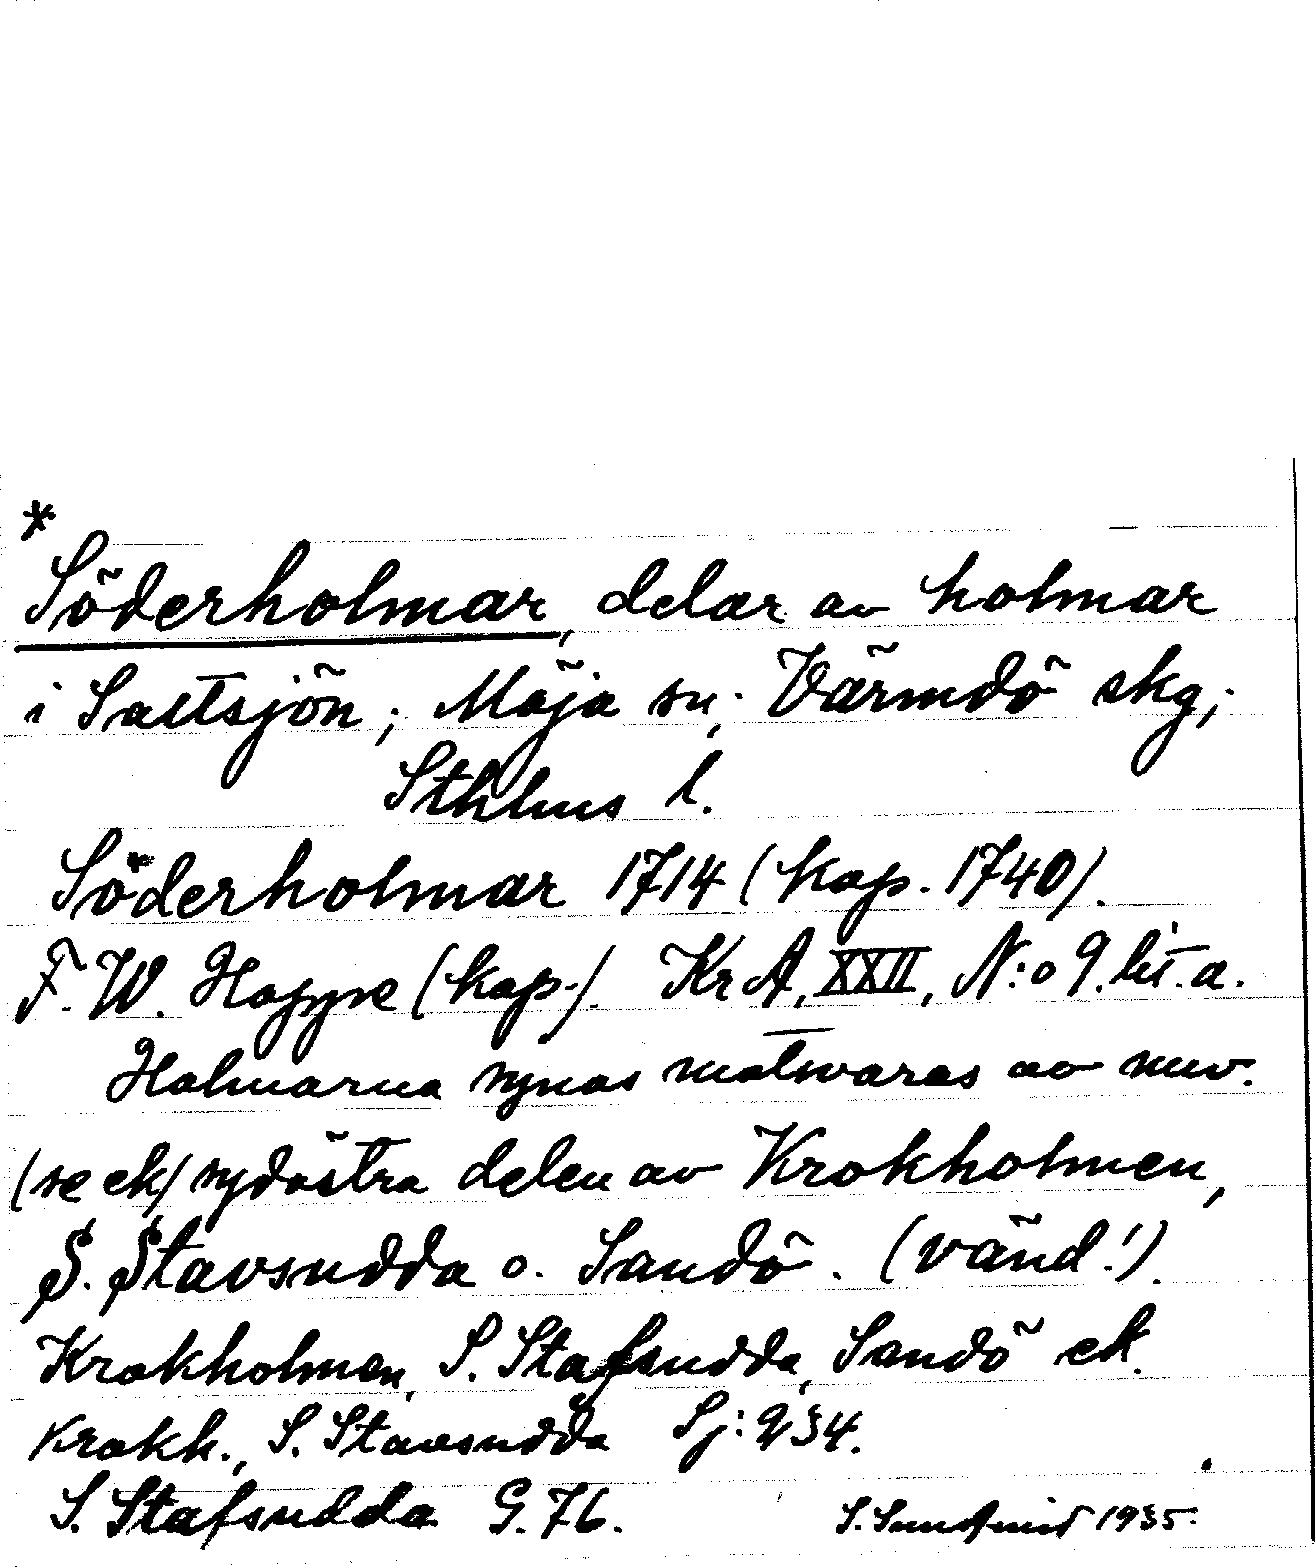 *
Söderholmar, delar av holmar
i Saltsjön; Möja sn; Värmdö skg;
Sthlms l.
Söderholmar 1714 (kop. 1740).
F. W. Hoppe (kop.). KrA, XXII, N:o 9. lit. a.
Holmarna synas motsvaras av nuv.
(se ek) sydöstra delen av Krokholmen,
S. Stavsudda o. Sandö. (vänd!).
Krokholmen, S. Stafsudda, Sandö ek.
Krokh., S. Stavsudda Sj: 934.
S. Stafsudda G. 76.
S. Sundqvist 1935.